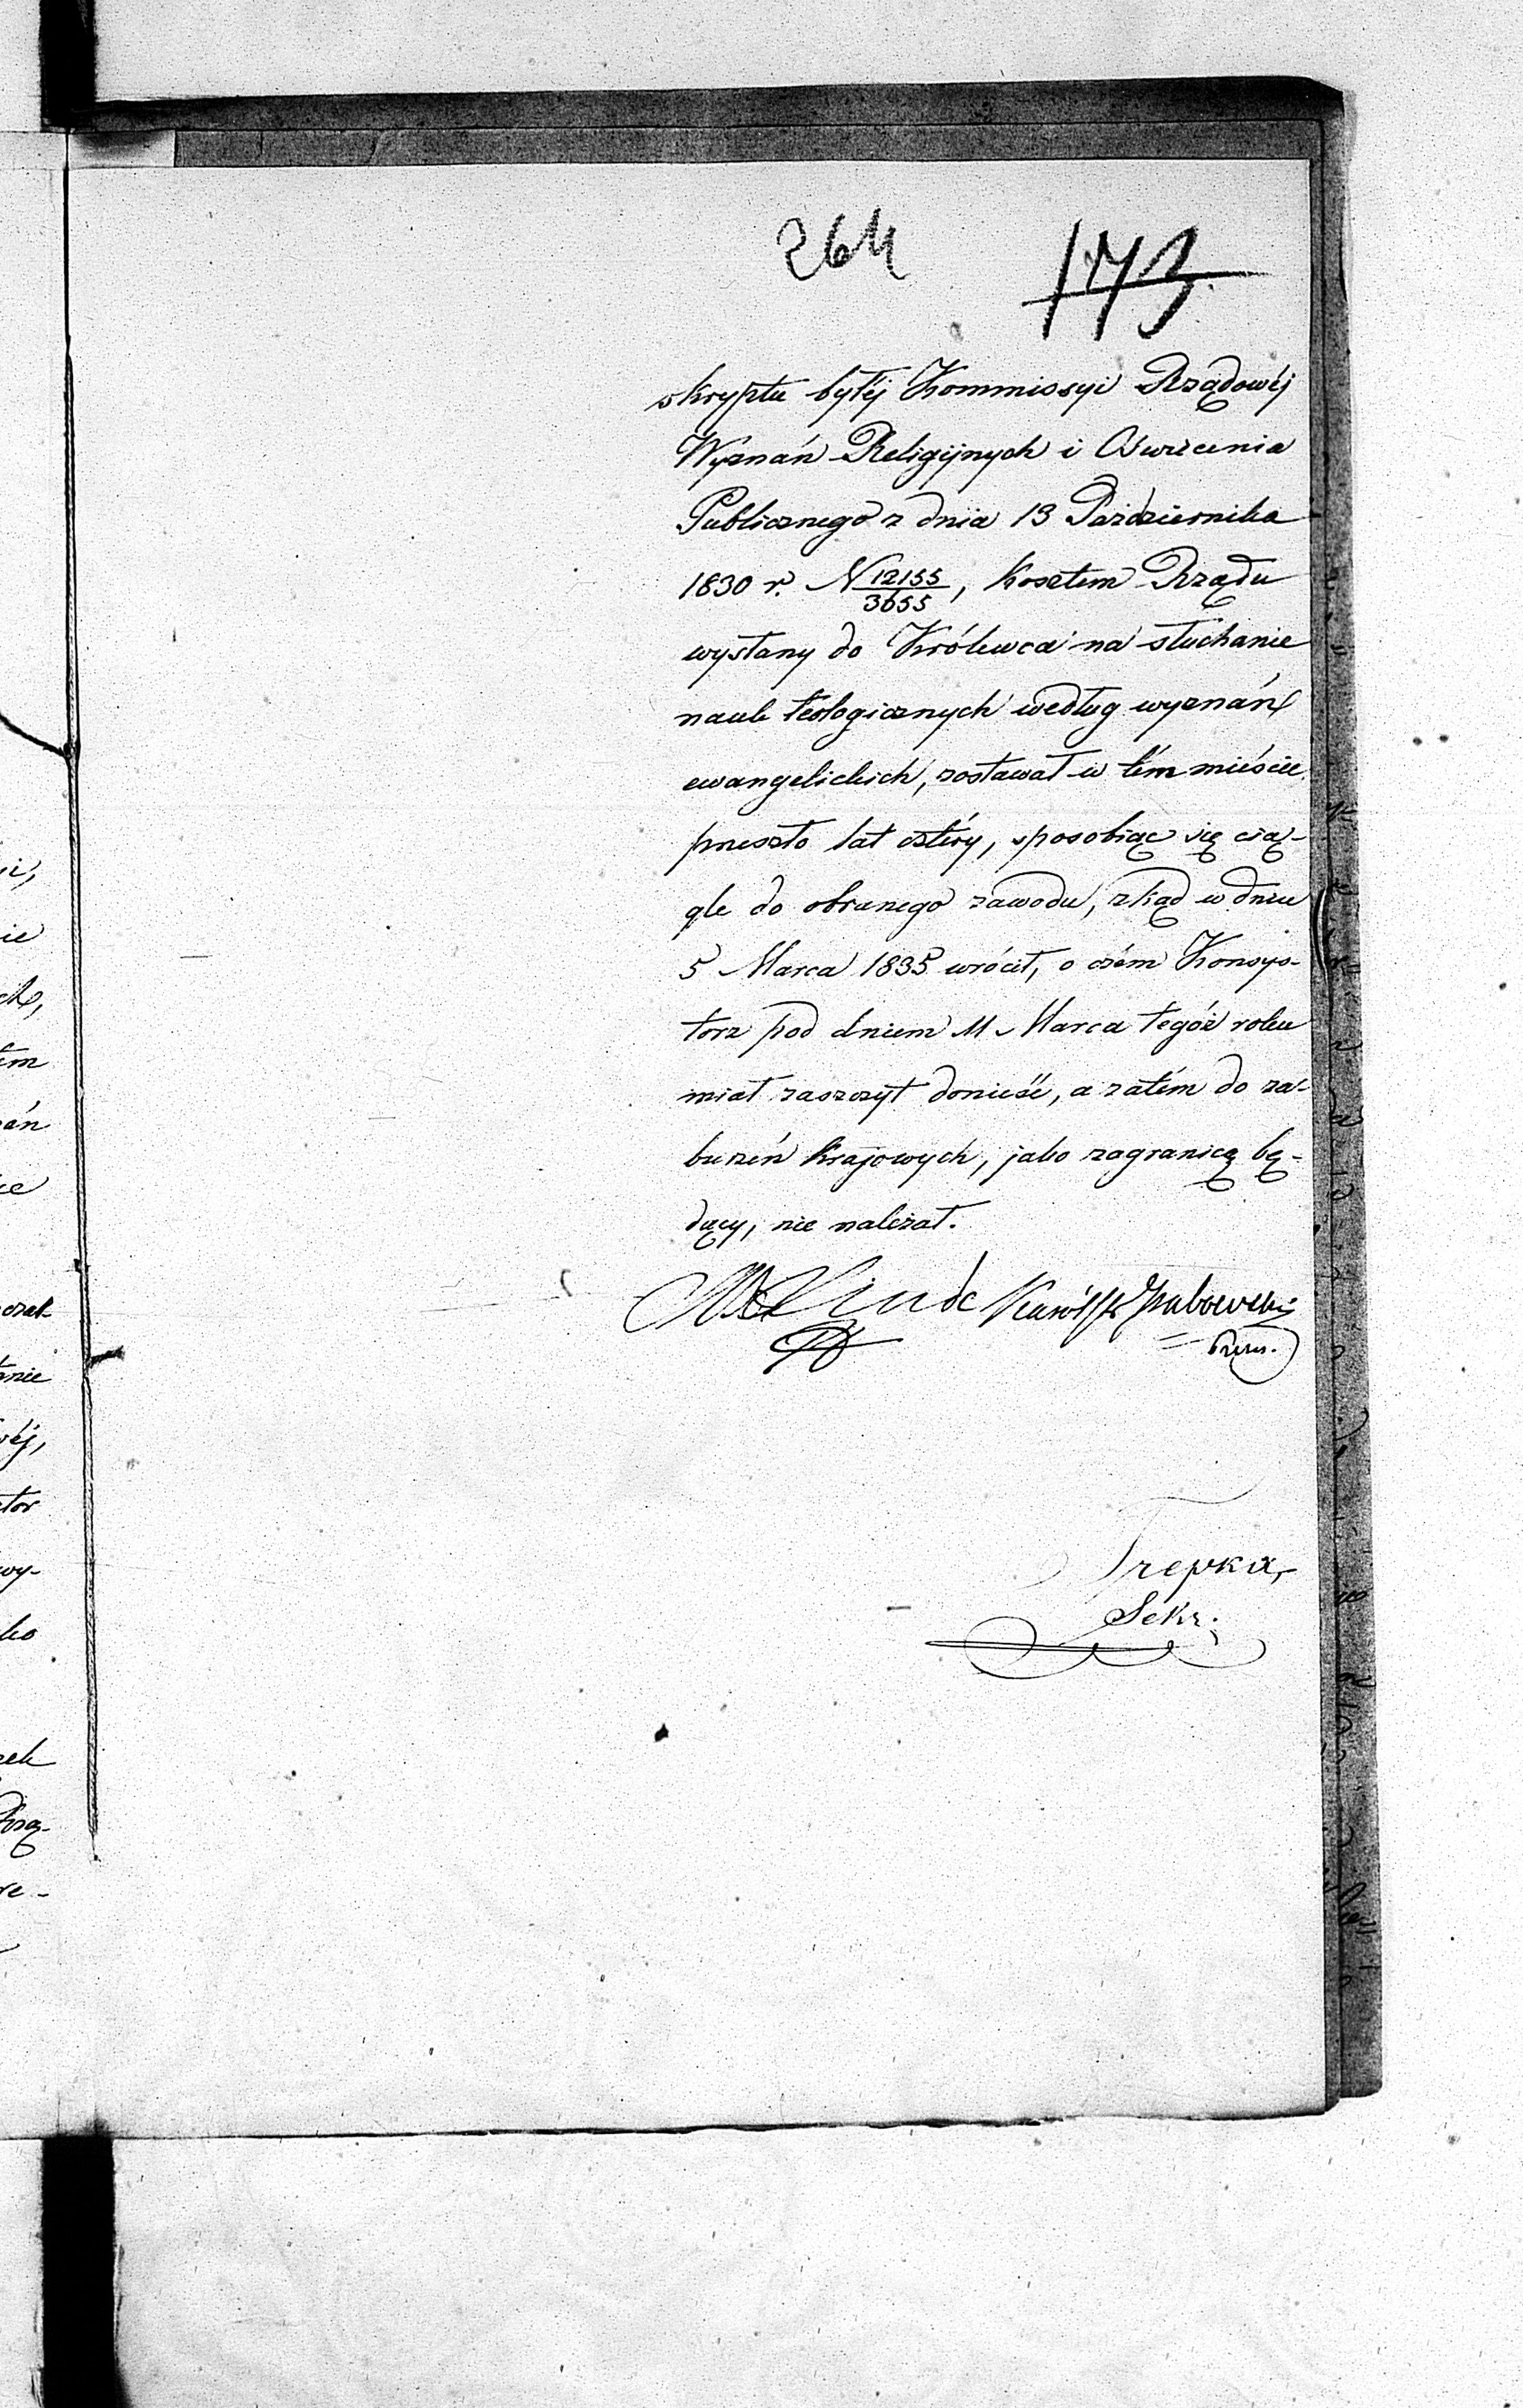 264
173.
skryptu byłéj Kommissyi Rządowéj
Wyznań Religijnych i Oświecenia
Publicznego z dnia 13 Października
1830 r. N 12155/3655, kosztem Rządu
wysłany do Królewca na słuchanie
nauk teologicznych według wyznań
ewangelickich, zostawał w tém mieście
przeszło lat cztéry, sposobiąc się cią-
gle do obranego zawodu, zkąd w dniu
5 Marca 1835 wrócił, o czém Konsys-
torz pod dniem 11 Marca tegóż roku
miał zaszczyt donieść, a zatém do za-
burzeń krajowych, jako zagranicą bę-
dący, nie należał.
Linde Karól
Trepka,
Sekr.
ie
tém
ce
nie
wéj,
tor
wy-
ko
re-